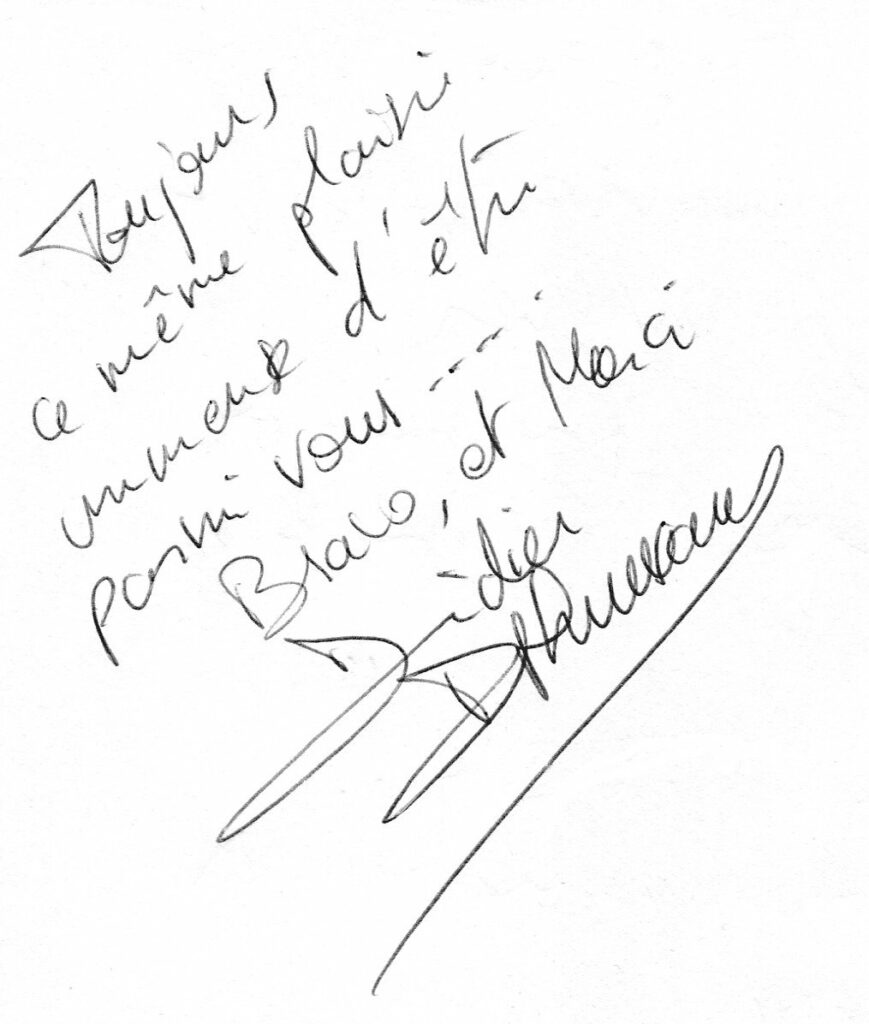 Toujours
ce même plaisir
immense d'être
parmi vous ----
Bravo, et Merci
Didier